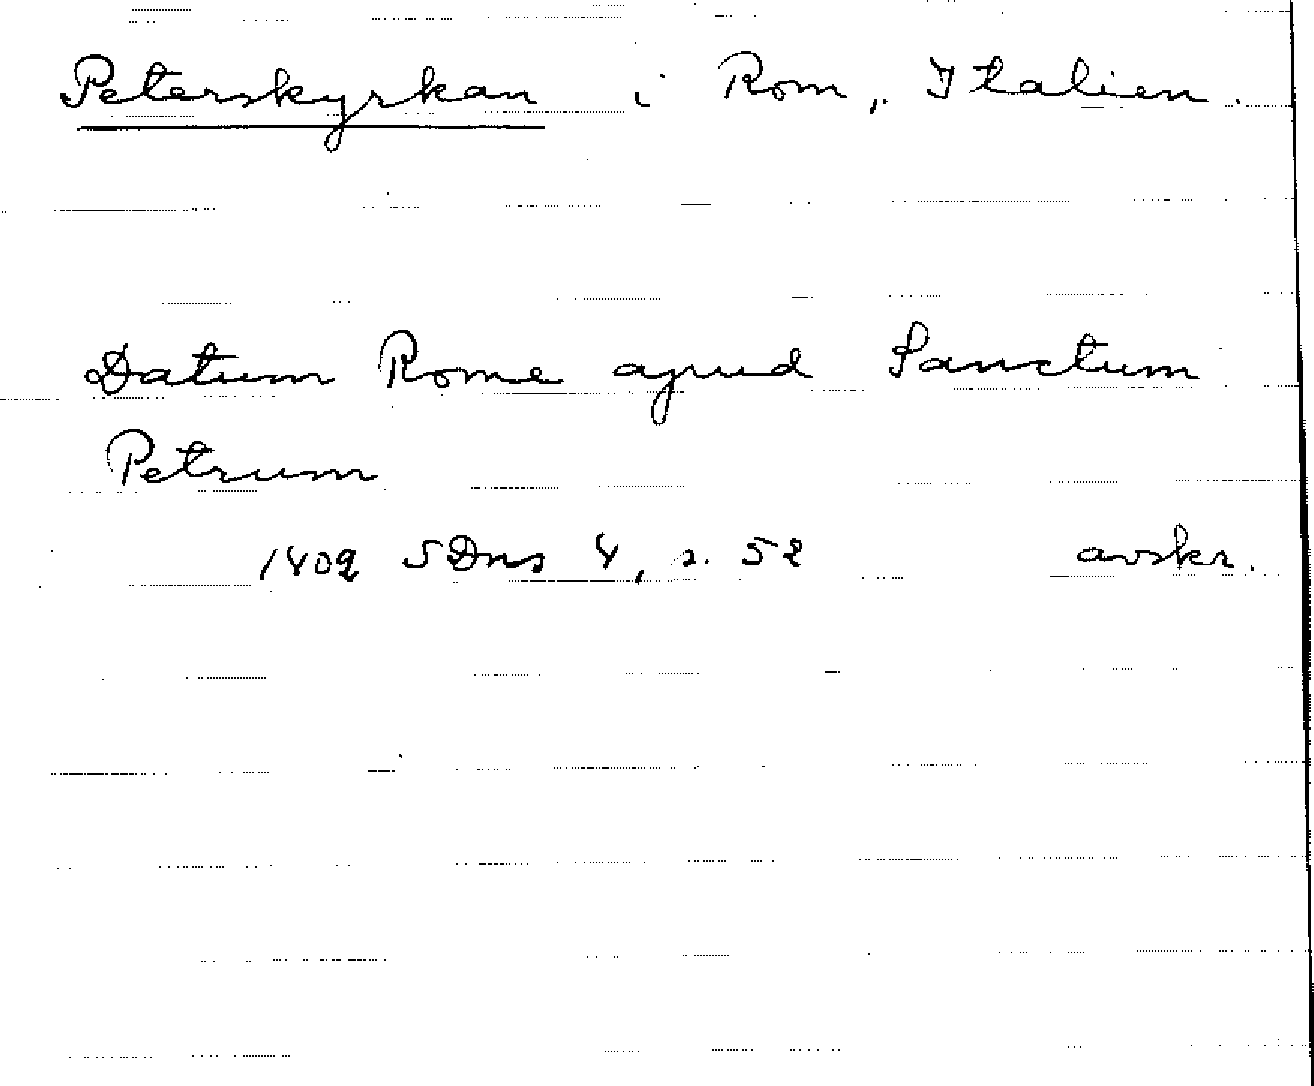 Peterskyrkan i Rom, Italien.
Datum Rome apud Sanctum
Petrum
1402 SDns 4, s. 52 avskr.